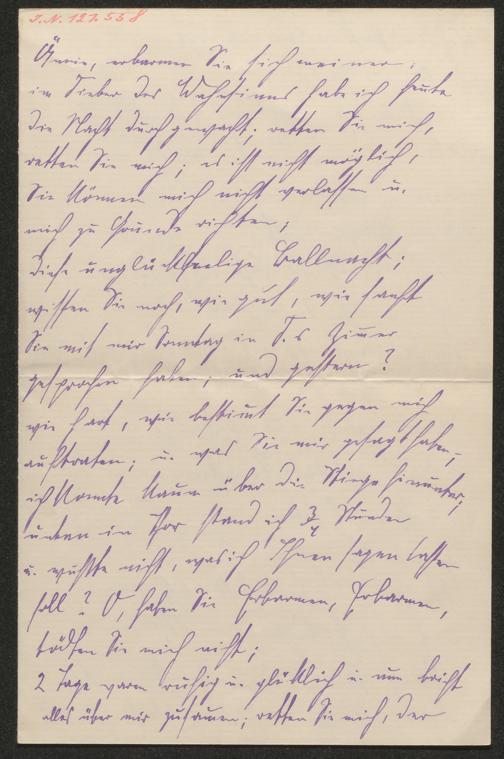 I.N. 127.558
Annie, erbarmen Sie sich meiner;
im Fieber des Wahnsinns habe ich heute
die Nacht durchgewacht; retten Sie mich,
retten Sie mich; es ist nicht möglich,
Sie können mich nicht verlassen u.
mich zu Grunde richten;
diese unglückseelige Ballnacht;
wissen Sie noch, wie gut, wie sanft
Sie mit mir Sonntag in T.s Zimmer
gesprochen haben; und gestern?
wie hart, wie bestimt Sie gegen mich
auftraten; u. was Sie mir gesagt haben,
ich konnte kaum über die Stiege hinunter;
unten im Thor stand ich 3/4 Stunden
u. wußte nicht, was ich Ihnen sagen lassen
soll? O, haben Sie Erbarmen, Erbarmen,
tödten Sie mich nicht;
2 Tage waren ruhig u. glücklich u. nun bricht
alles über mir zusammen; retten Sie mich, der